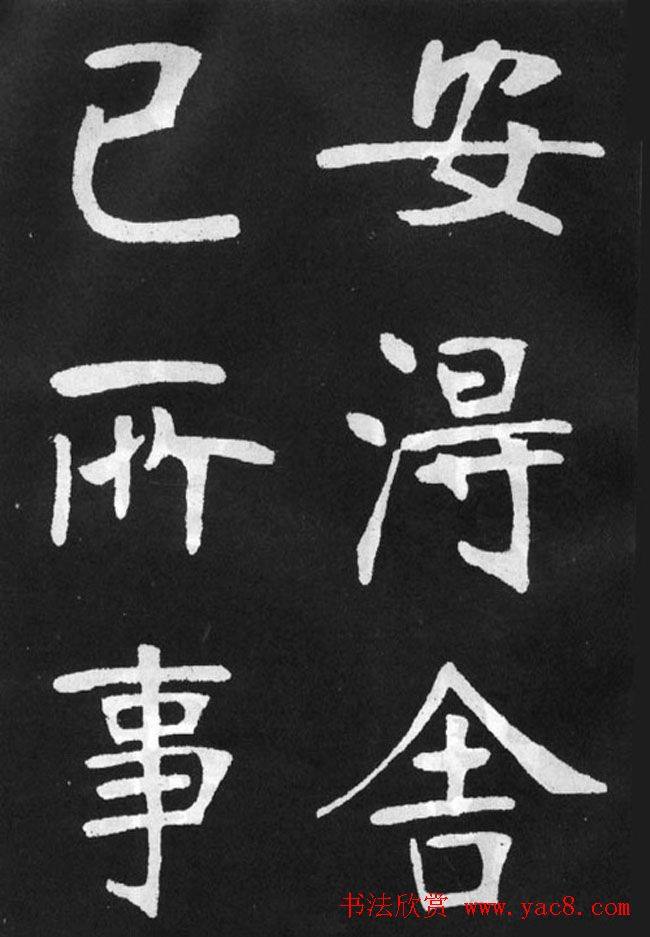 安得舍
己所事
书法欣赏 www.yac8.com